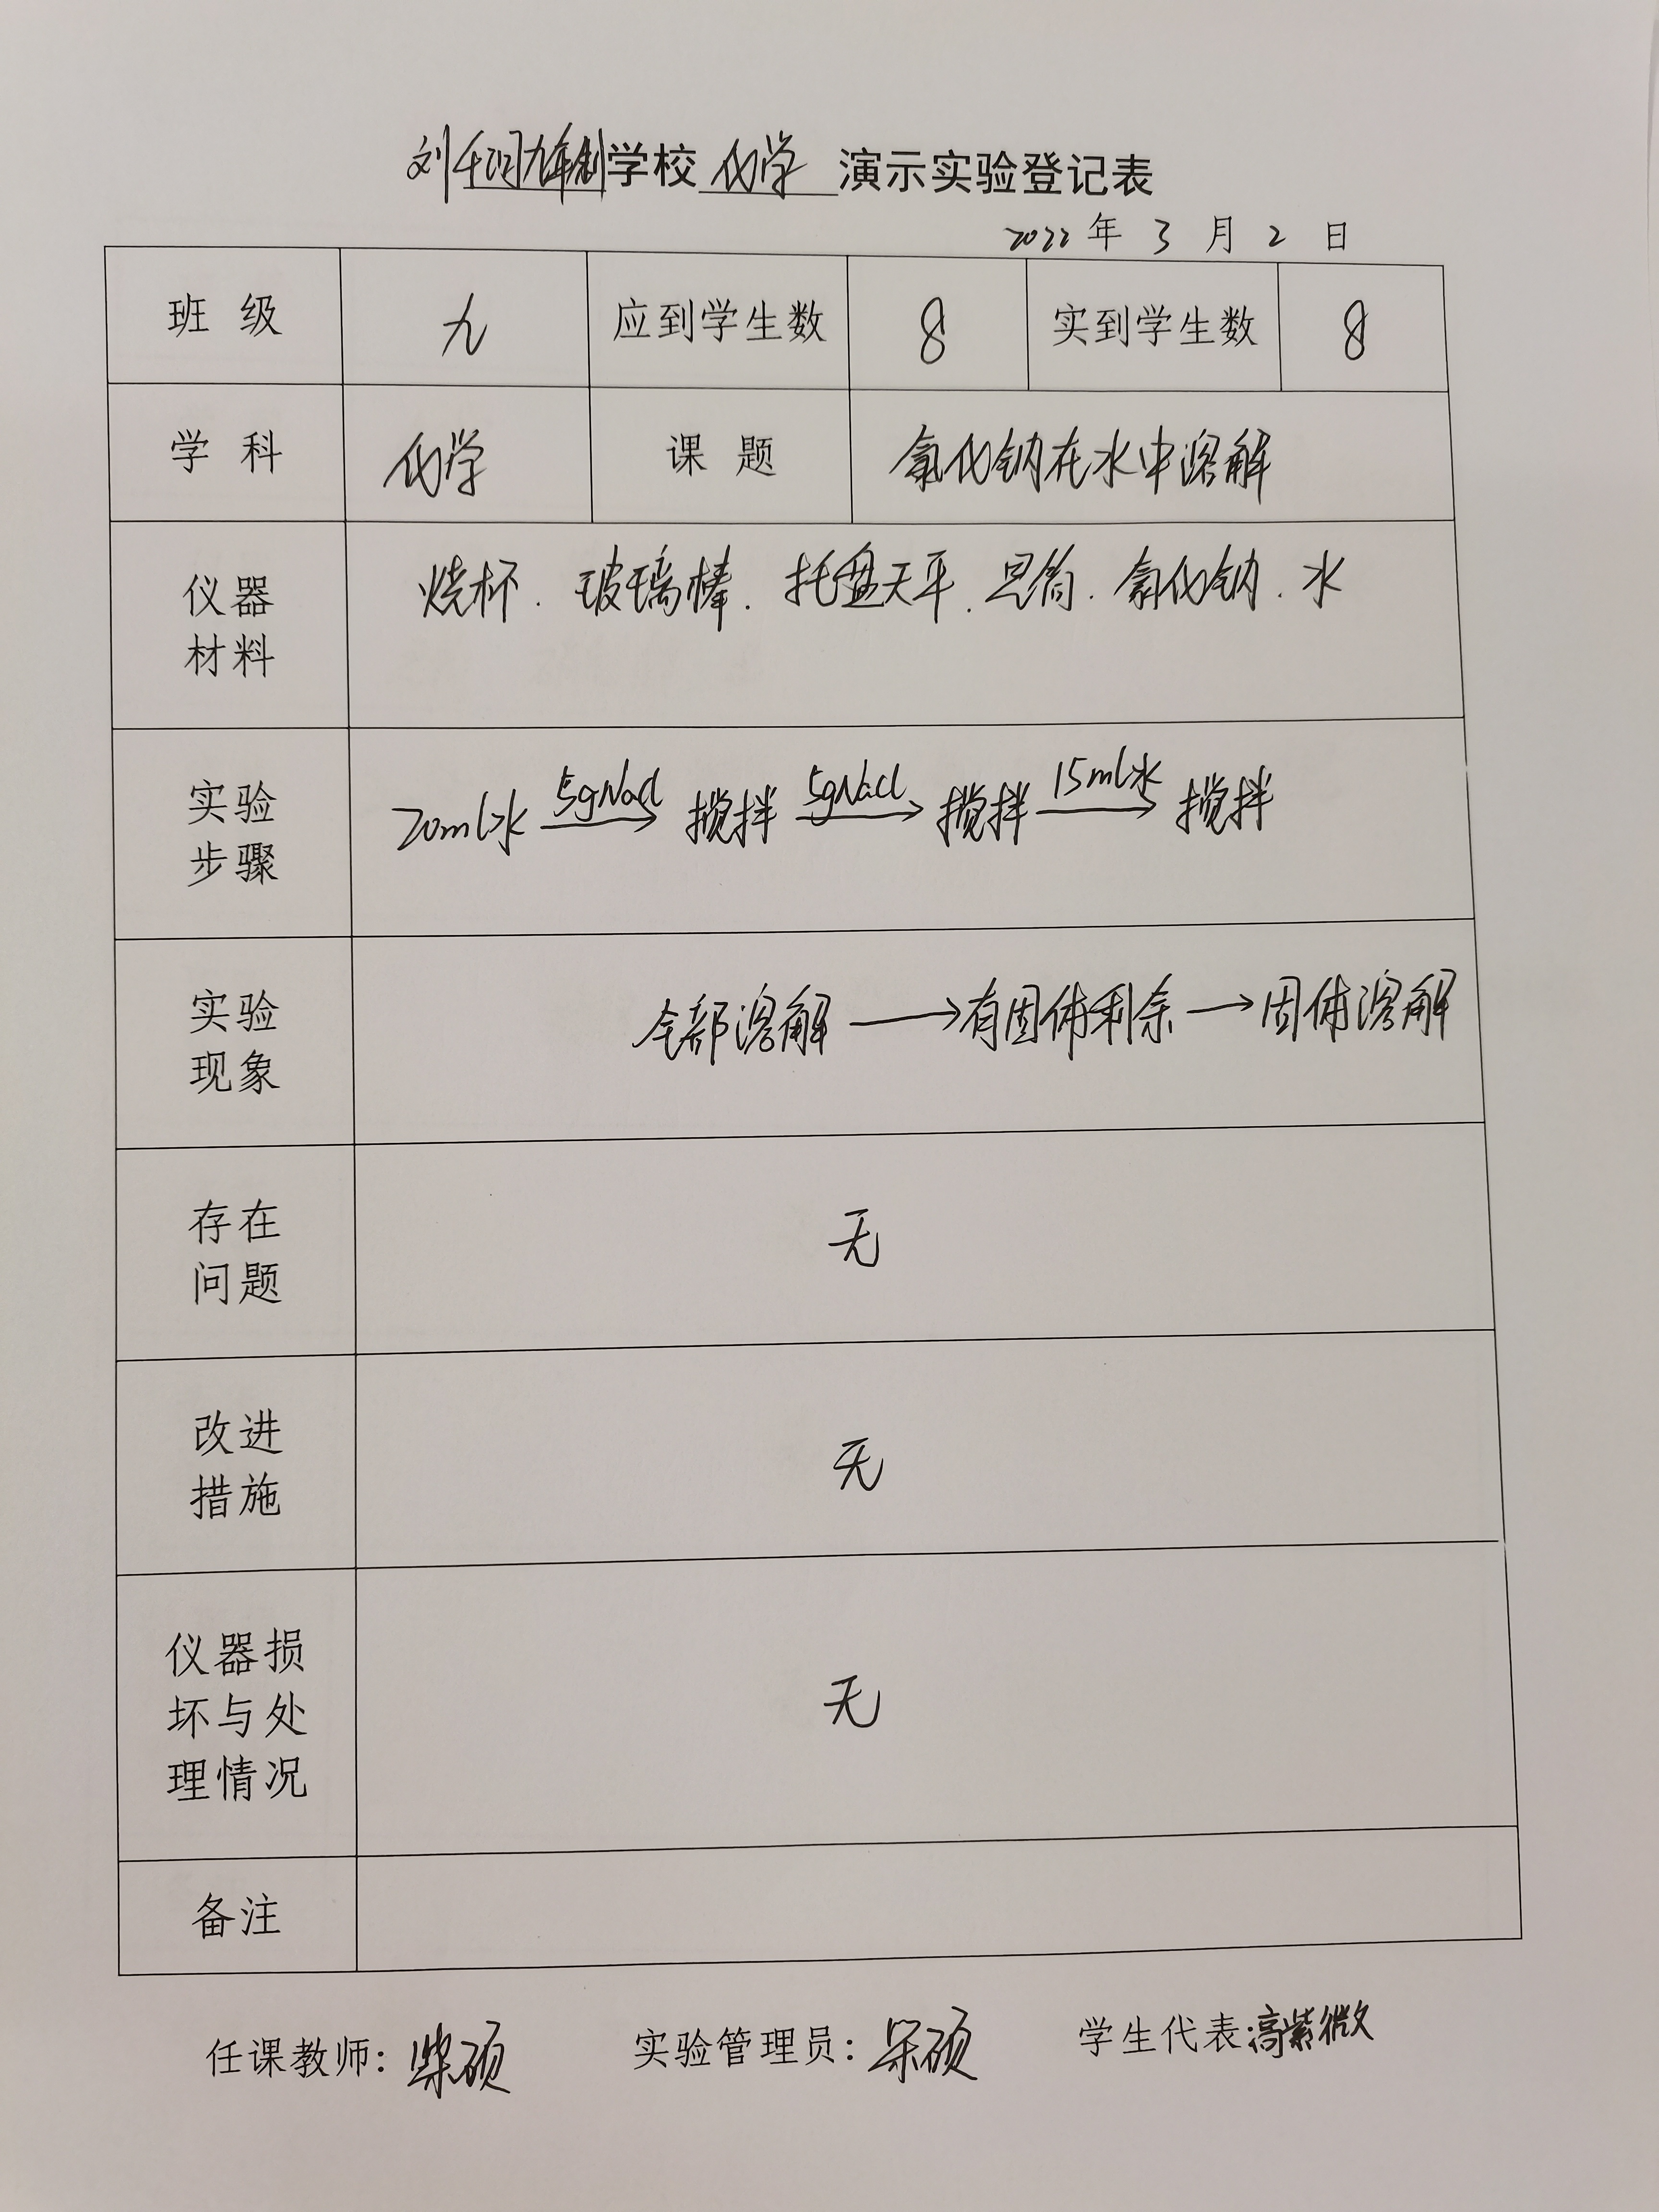 刘千河九年制学校 化学 演示实验登记表
2022年 3 月 2 日
班 级 九 应到学生数 8 实到学生数 8
学 科 化学 课 题 氯化钠在水中溶解
仪器
材料
烧杯. 玻璃棒. 托盘天平. 量筒. 氯化钠. 水
实验
步骤
5gNacl 5gNacl 15ml水
20ml水 → 搅拌 → 搅拌 → 搅拌
实验
现象
全部溶解 → 有固体剩余 → 固体溶解
存在
问题
无
改进
措施
无
仪器损
坏与处
理情况
无
备注
任课教师: 柴硕 实验管理员: 柴硕 学生代表:高紫微